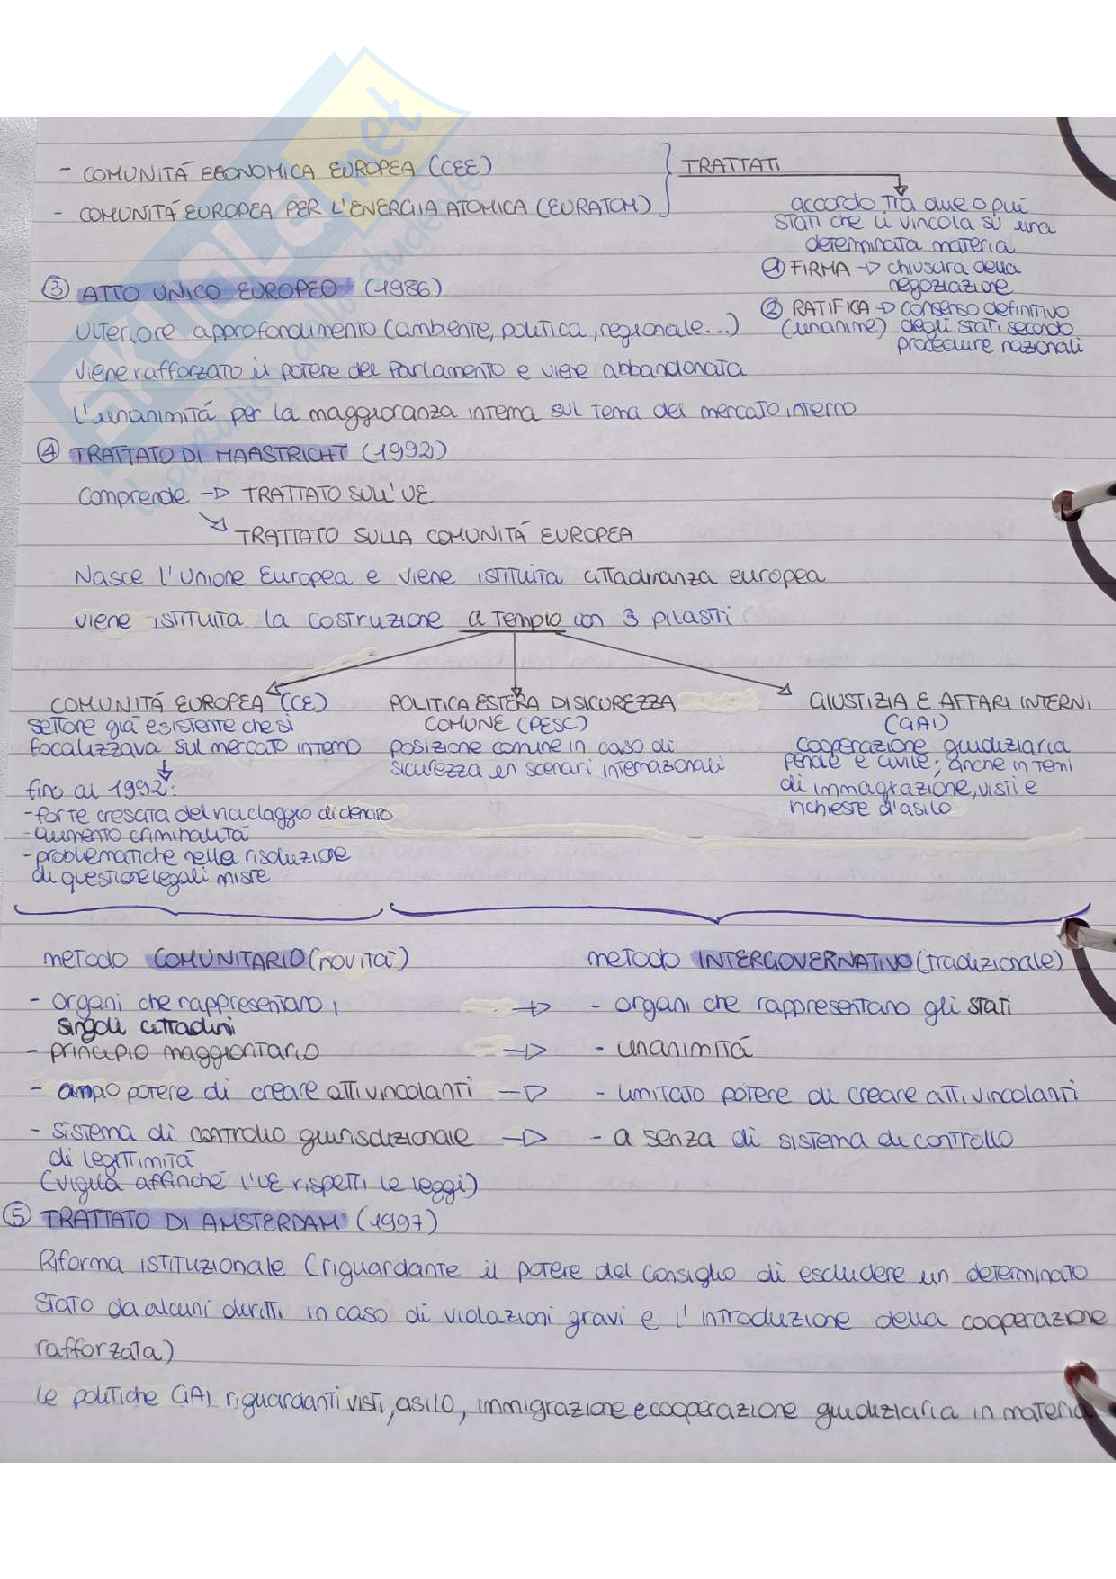 - COMUNITÁ ECONOMICA EUROPEA (CEE)
- COMUNITÁ EUROPEA PER L'ENERGIA ATOMICA (EURATOM)
TRATTATI
accordo tra due o più
stati che li vincola su una
determinata materia
① FIRMA → chiusura della
negoziazione
② RATIFICA → consenso definitivo
(unanime) degli stati secondo
procedure nazionali
③ ATTO UNICO EUROPEO (1986)
Ulteriore approfondimento (ambiente, politica, regionale...)
Viene rafforzato il potere del Parlamento e viene abbandonata
l'unanimitá per la maggioranza interna sul tema del mercato interno
④ TRATTATO DI MAASTRICHT (1992)
Comprende → TRATTATO SULL'UE
↘ TRATTATO SULLA COMUNITÁ EUROPEA
Nasce l'Unione Europea e viene istituita cittadinanza europea
viene istituita la costruzione a tempio con 3 pilastri
COMUNITÁ EUROPEA (CE)
settore giá esistente che si
focalizzava sul mercato interno
fino al 1992:
- forte crescita del riciclaggio di denaro
- aumento criminalitá
- problematiche nella risoluzione
di questione legali miste
POLITICA ESTERA DI SICUREZZA
COMUNE (PESC)
posizione comune in caso di
sicurezza in scenari internazionali
GIUSTIZIA E AFFARI INTERNI
(GAI)
cooperazione giudiziaria
penale e civile; anche in temi
di immagrazione, visti e
richieste d'asilo
metodo COMUNITARIO (novitá)
- organi che rappresentano i
singoli cittadini
- principio maggioritario
- ampio potere di creare atti vincolanti
- sistema di controllo giurisdizionale
di legittimitá
(vigila affinché l'UE rispetti le leggi)
metodo INTERGOVERNATIVO (tradizionale)
→ - organi che rappresentano gli stati
→ - unanimitá
→ - limitato potere di creare atti vincolanti
→ - a senza di sistema di controllo
⑤ TRATTATO DI AMSTERDAM (1997)
Riforma istituzionale (riguardante il potere del consiglio di escludere un determinato
stato da alcuni diritti in caso di violazioni gravi e l'introduzione della cooperazione
rafforzata)
Le politiche GAI riguardanti visti, asilo, immigrazione e cooperazione giudiziaria in materia
SKUOLA.net